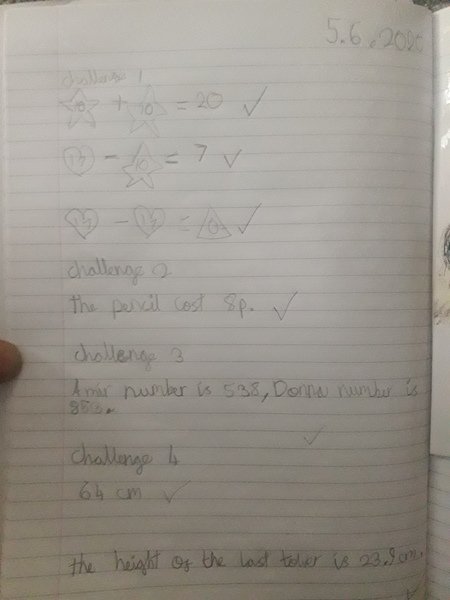 5.6.2020
challenge 1
10 + 10 = 20
17 - 10 = 7
17 - 17 = 0
challenge 2
the pencil cost 8p.
challenge 3
Amir number is 538, Donna number is
challenge 4
64 cm
the height of the last tower is 23.9cm.